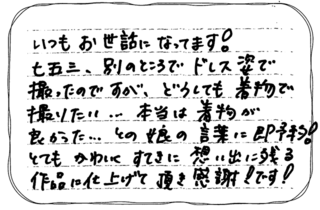 いつもお世話になってます!
七五三、別のところでドレス姿で
撮ったのですが、どうしても着物で
撮りたい… 本当は着物が
良かった… との娘の言葉に即予約!
とてもかわいくすてきに想い出に残る
作品に仕上げて頂き感謝!です!